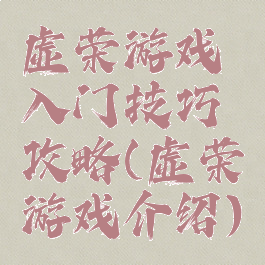 虚荣游戏
入门技巧
攻略(虚荣
游戏介绍)